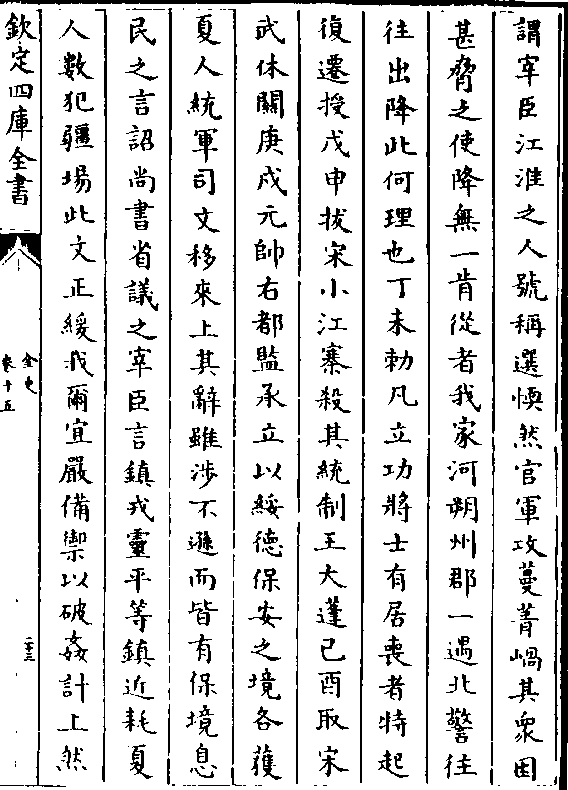 謂宰臣江淮之人號稱選愞然官軍攻蔓菁堝其衆困
甚脅之使降無一肯從者我家河朔州郡一遇北警往
往出降此何理也丁未勅凡立功將士有居喪者特起
復遷授戊申拔宋小江寨殺其統制王大蓬己酉取宋
武休關庚戌元帥右都監承立以綏德保安之境各獲
夏人統軍司文移來上其辭雖涉不遜而皆有保境息
民之言詔尚書省議之宰臣言鎮戎靈平等鎮近耗夏
人數犯疆場此文正緩我爾宜嚴備禦以破姦計上然
欽定四庫全書
金史
卷十五
二十三